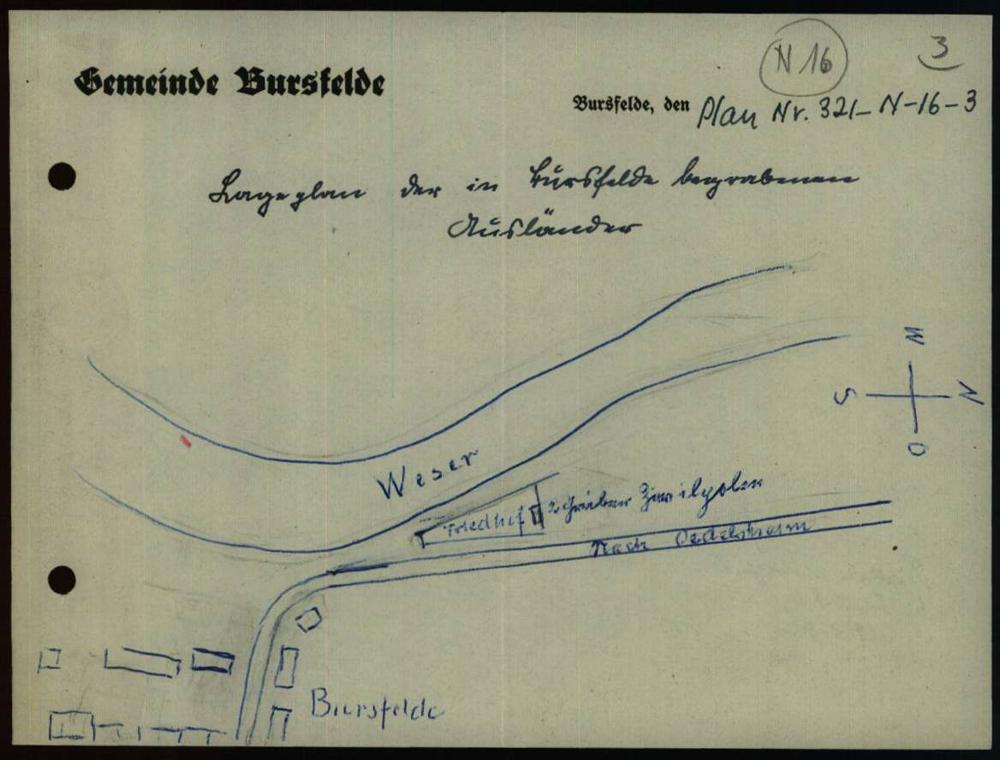 N 16
3
Gemeinde Bursfelde
Bursfelde, den Plan Nr. 321-N-16-3
Lageplan der in Bursfelde begrabenen
Ausländer
W
S
N
O
Weser
Friedhof
2 Gräber Zivilpolen
Nach Oedelsheim
Bursfelde